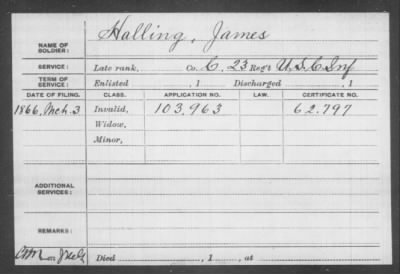 Halling, James
NAME OF SOLDIER:
SERVICE: Late rank, Co. C. 23 Reg't U.S.C. Inf
TERM OF SERVICE: Enlisted , 1 Discharged , 1
DATE OF FILING. CLASS. APPLICATION NO. LAW. CERTIFICATE NO.
1866, Mch. 3 Invalid, 103.963 62.797
Widow,
Minor,
ADDITIONAL SERVICES:
REMARKS:
Died , 1 , at